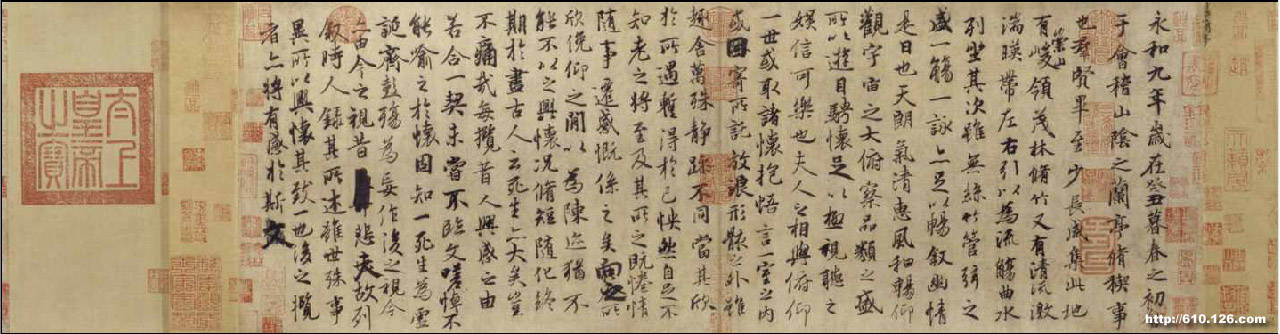 永和九年歲在癸丑暮春之初
于會稽山陰之蘭亭脩稧事
也群賢畢至少長咸集此地
有崇山峻領茂林脩竹又有清流激
湍暎帶左右引以為流觴曲水
列坐其次雖無絲竹管弦之
盛一觴一詠亦足以暢敘幽情
是日也天朗氣清惠風和暢仰
觀宇宙之大俯察品類之盛
所以遊目騁懷足以極視聽之
娛信可樂也夫人之相與俯仰
一世或取諸懷抱悟言一室之內
或因寄所託放浪形骸之外雖
趣舍萬殊靜躁不同當其欣
於所遇蹔得於己怏然自足不
知老之將至及其所之既惓情
隨事遷感慨係之矣向之所
欣俛仰之閒以為陳迹猶不
能不以之興懷況脩短隨化終
期於盡古人云死生亦大矣豈
不痛哉每攬昔人興感之由
若合一契未嘗不臨文嗟悼不
能喻之於懷固知一死生為虛
誕齊彭殤為妄作後之視今
亦由今之視昔悲夫故列
敘時人錄其所述雖世殊事
異所以興懷其致一也後之攬
者亦將有感於斯文
太上皇帝之寶
http://610.126.com